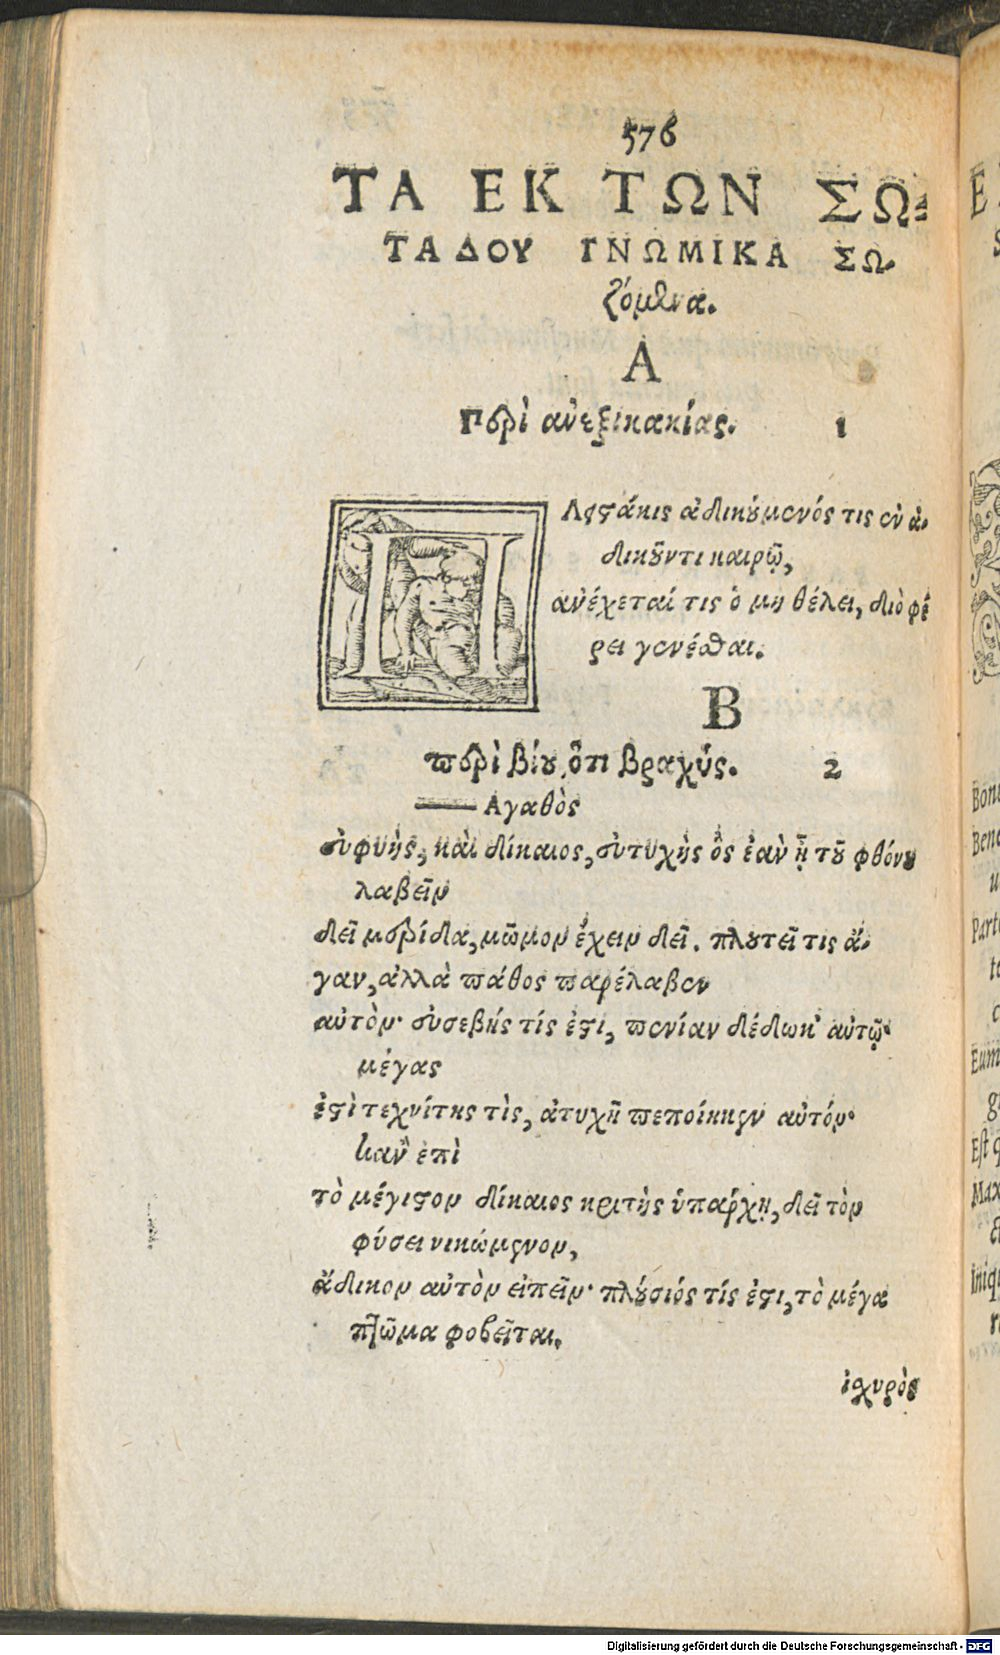 576
ΤΑ ΕΚ ΤΩΝ ΣΩ-
ΤΑΔΟΥ ΓΝΩΜΙΚΑ ΣΩ-
ζόμενα.
Α
Περὶ ἀνεξικακίας. 1
ΠΛςτάκις ἀδικούμενός τις ἐν ἀ-
δικοῦντι καιρῷ,
ἀνέχεταί τις ὁ μη θέλει, διὸ φέ
ρει γενέσθαι.
Β
περὶ βίου, ὅτι βραχύς. 2
Αγαθὸς
εὐφυὴς, καὶ δίκαιος, εὐτυχὴς ὃς ἐὰν ᾖ τοῦ φθόνου
λαβεῖν
δεῖ μερίδα, μῶμον ἔχειν δεῖ. πλουτεῖ τις ἄ-
γαν, ἀλλὰ πάθος παρέλαβεν
αὐτόν· εὐσεβής τίς ἐστι, πενίαν δέδωκ' αὐτῷ·
μέγας
ἐστὶ τεχνίτης τὶς, ἀτυχῆ πεποίηκεν αὐτόν·
κἂν ἐπὶ
τὸ μέγιστον δίκαιος κριτὴς ὑπάρχῃ, δεῖ τὸν
φύσει νικώμενον,
ἄδικον αὐτὸν εἰπεῖν· πλούσιός τίς ἐστι, τὸ μέγα
πτῶμα φοβεῖται.
ἰσχυρὸς
E
S
Bon
Bene
u
Part
te
c
Eum
g
Est q
Max
&
Iniq
r
Digitalisierung gefördert durch die Deutsche Forschungsgemeinschaft - DFG